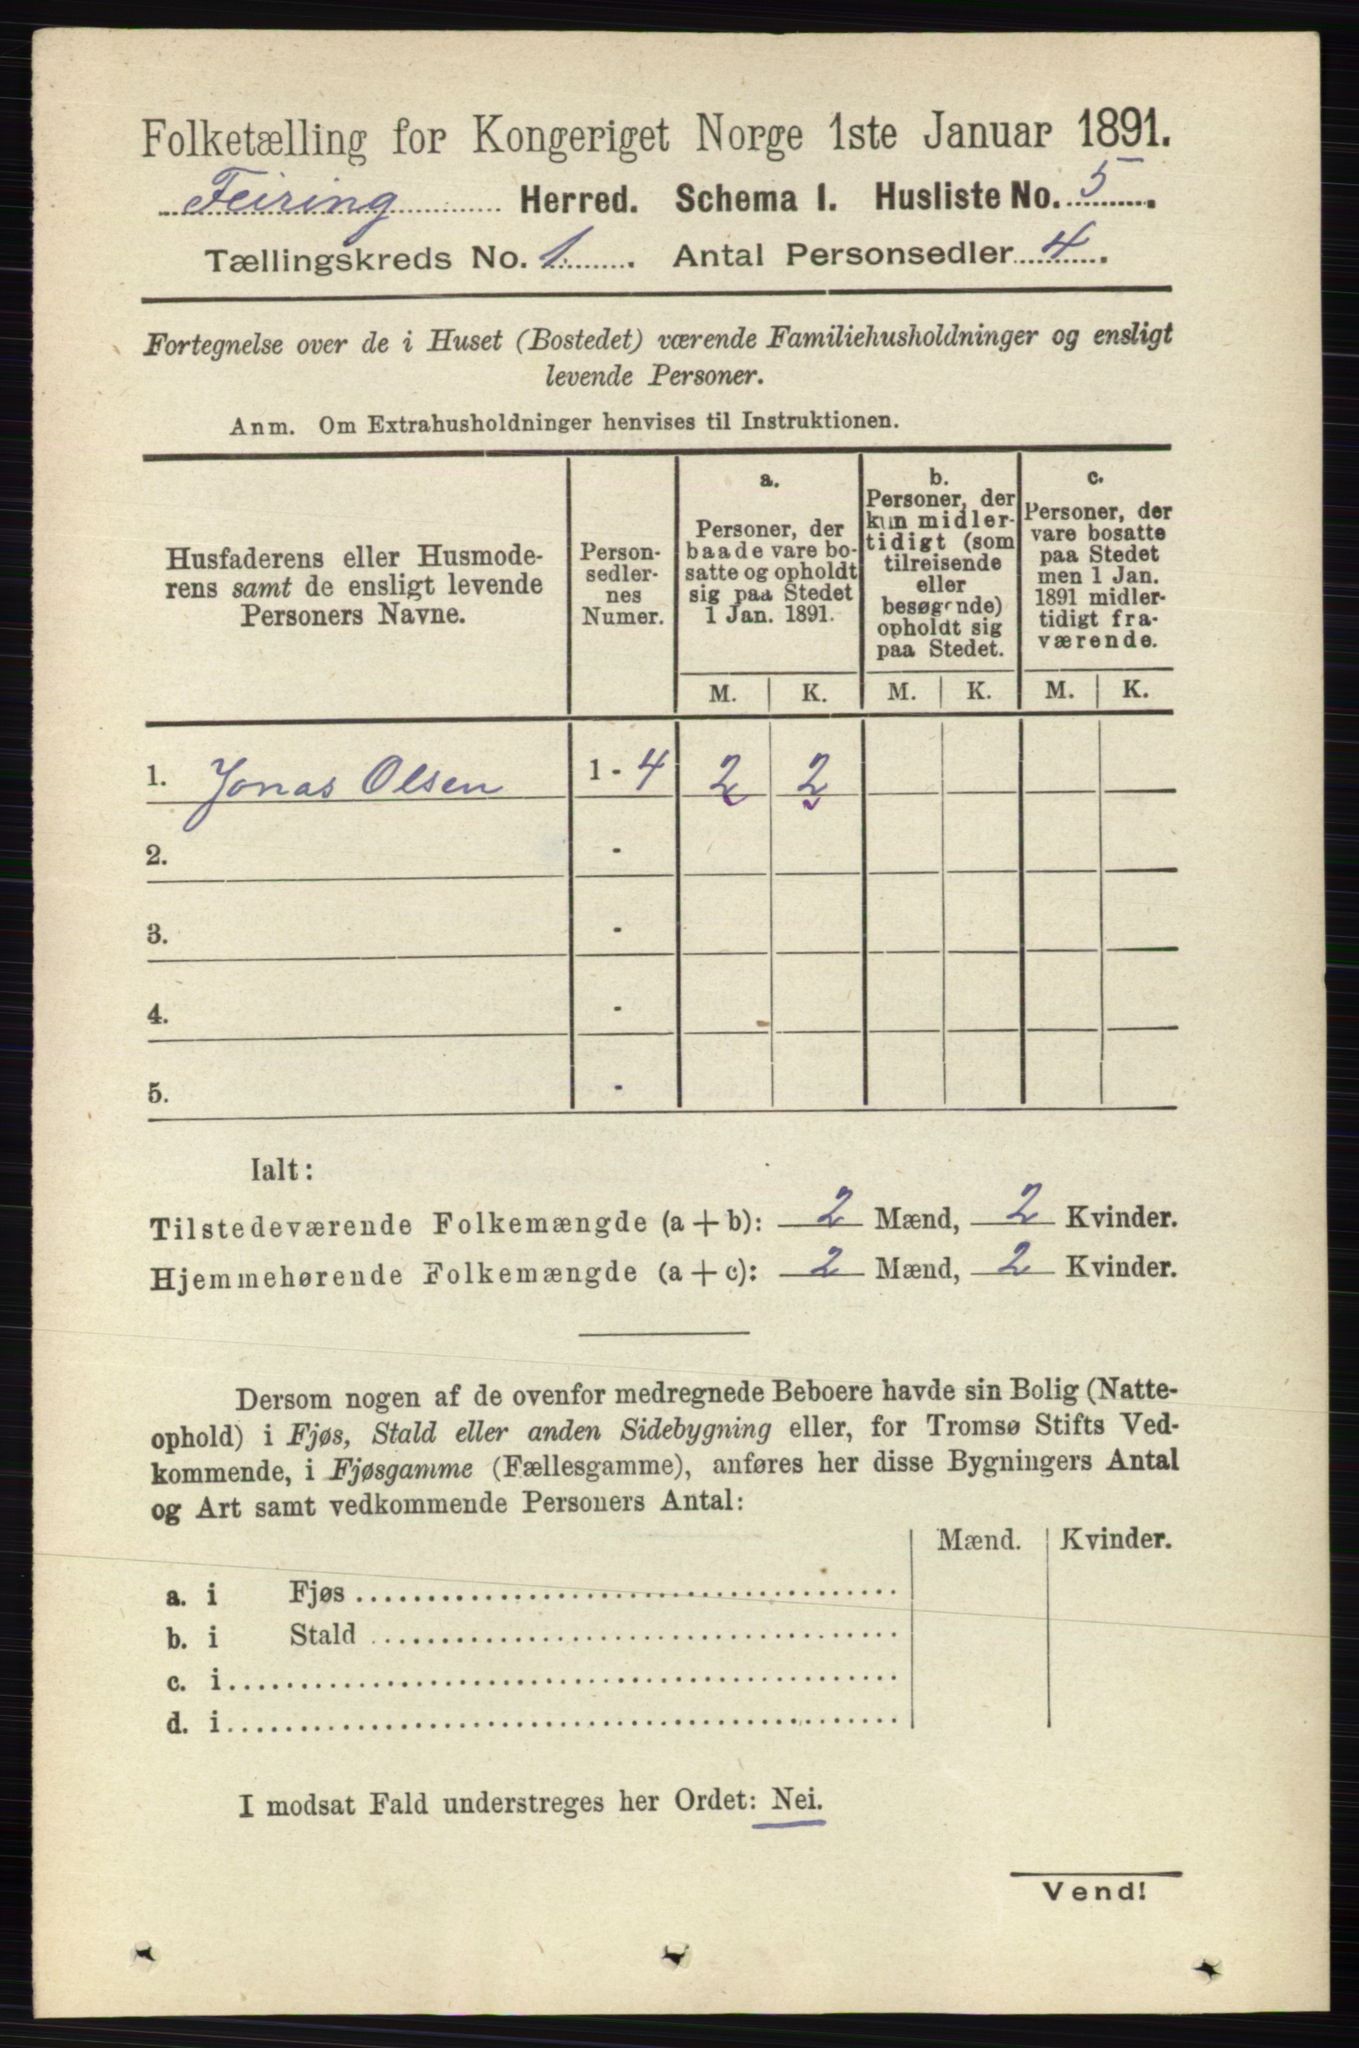 Folketælling for Kongeriget Norge 1ste Januar 1891.
Feiring Herred. Schema I. Husliste No. 5.
Tællingskreds No. 1. Antal Personsedler 4.
Fortegnelse over de i Huset (Bostedet) værende Familiehusholdninger og ensligt
levende Personer.
Anm. Om Extrahusholdninger henvises til Instruktionen.
Husfaderens eller Husmode-
rens samt de ensligt levende
Personers Navne.
Person-
sedler-
nes
Numer.
a.
Personer, der
baade vare bo-
satte og opholdt
sig paa Stedet
1 Jan. 1891.
b.
Personer, der
kun midler-
tidigt (som
tilreisende
eller
besøgende)
opholdt sig
paa Stedet.
c.
Personer, der
vare bosatte
paa Stedet
men 1 Jan.
1891 midler-
tidigt fra-
værende.
M. K. M. K. M. K.
1. Jonas Olsen 1 - 4 2 2
2. -
3. -
4. -
5. -
Ialt:
Tilstedeværende Folkemængde (a + b): 2 Mænd, 2 Kvinder.
Hjemmehørende Folkemængde (a + c): 2 Mænd, 2 Kvinder.
Dersom nogen af de ovenfor medregnede Beboere havde sin Bolig (Natte-
ophold) i Fjøs, Stald eller anden Sidebygning eller, for Tromsø Stifts Ved-
kommende, i Fjøsgamme (Fællesgamme), anføres her disse Bygningers Antal
og Art samt vedkommende Personers Antal:
Mænd. Kvinder.
a. i Fjøs
b. i Stald
c. i
d. i
I modsat Fald understreges her Ordet: Nei.
Vend!